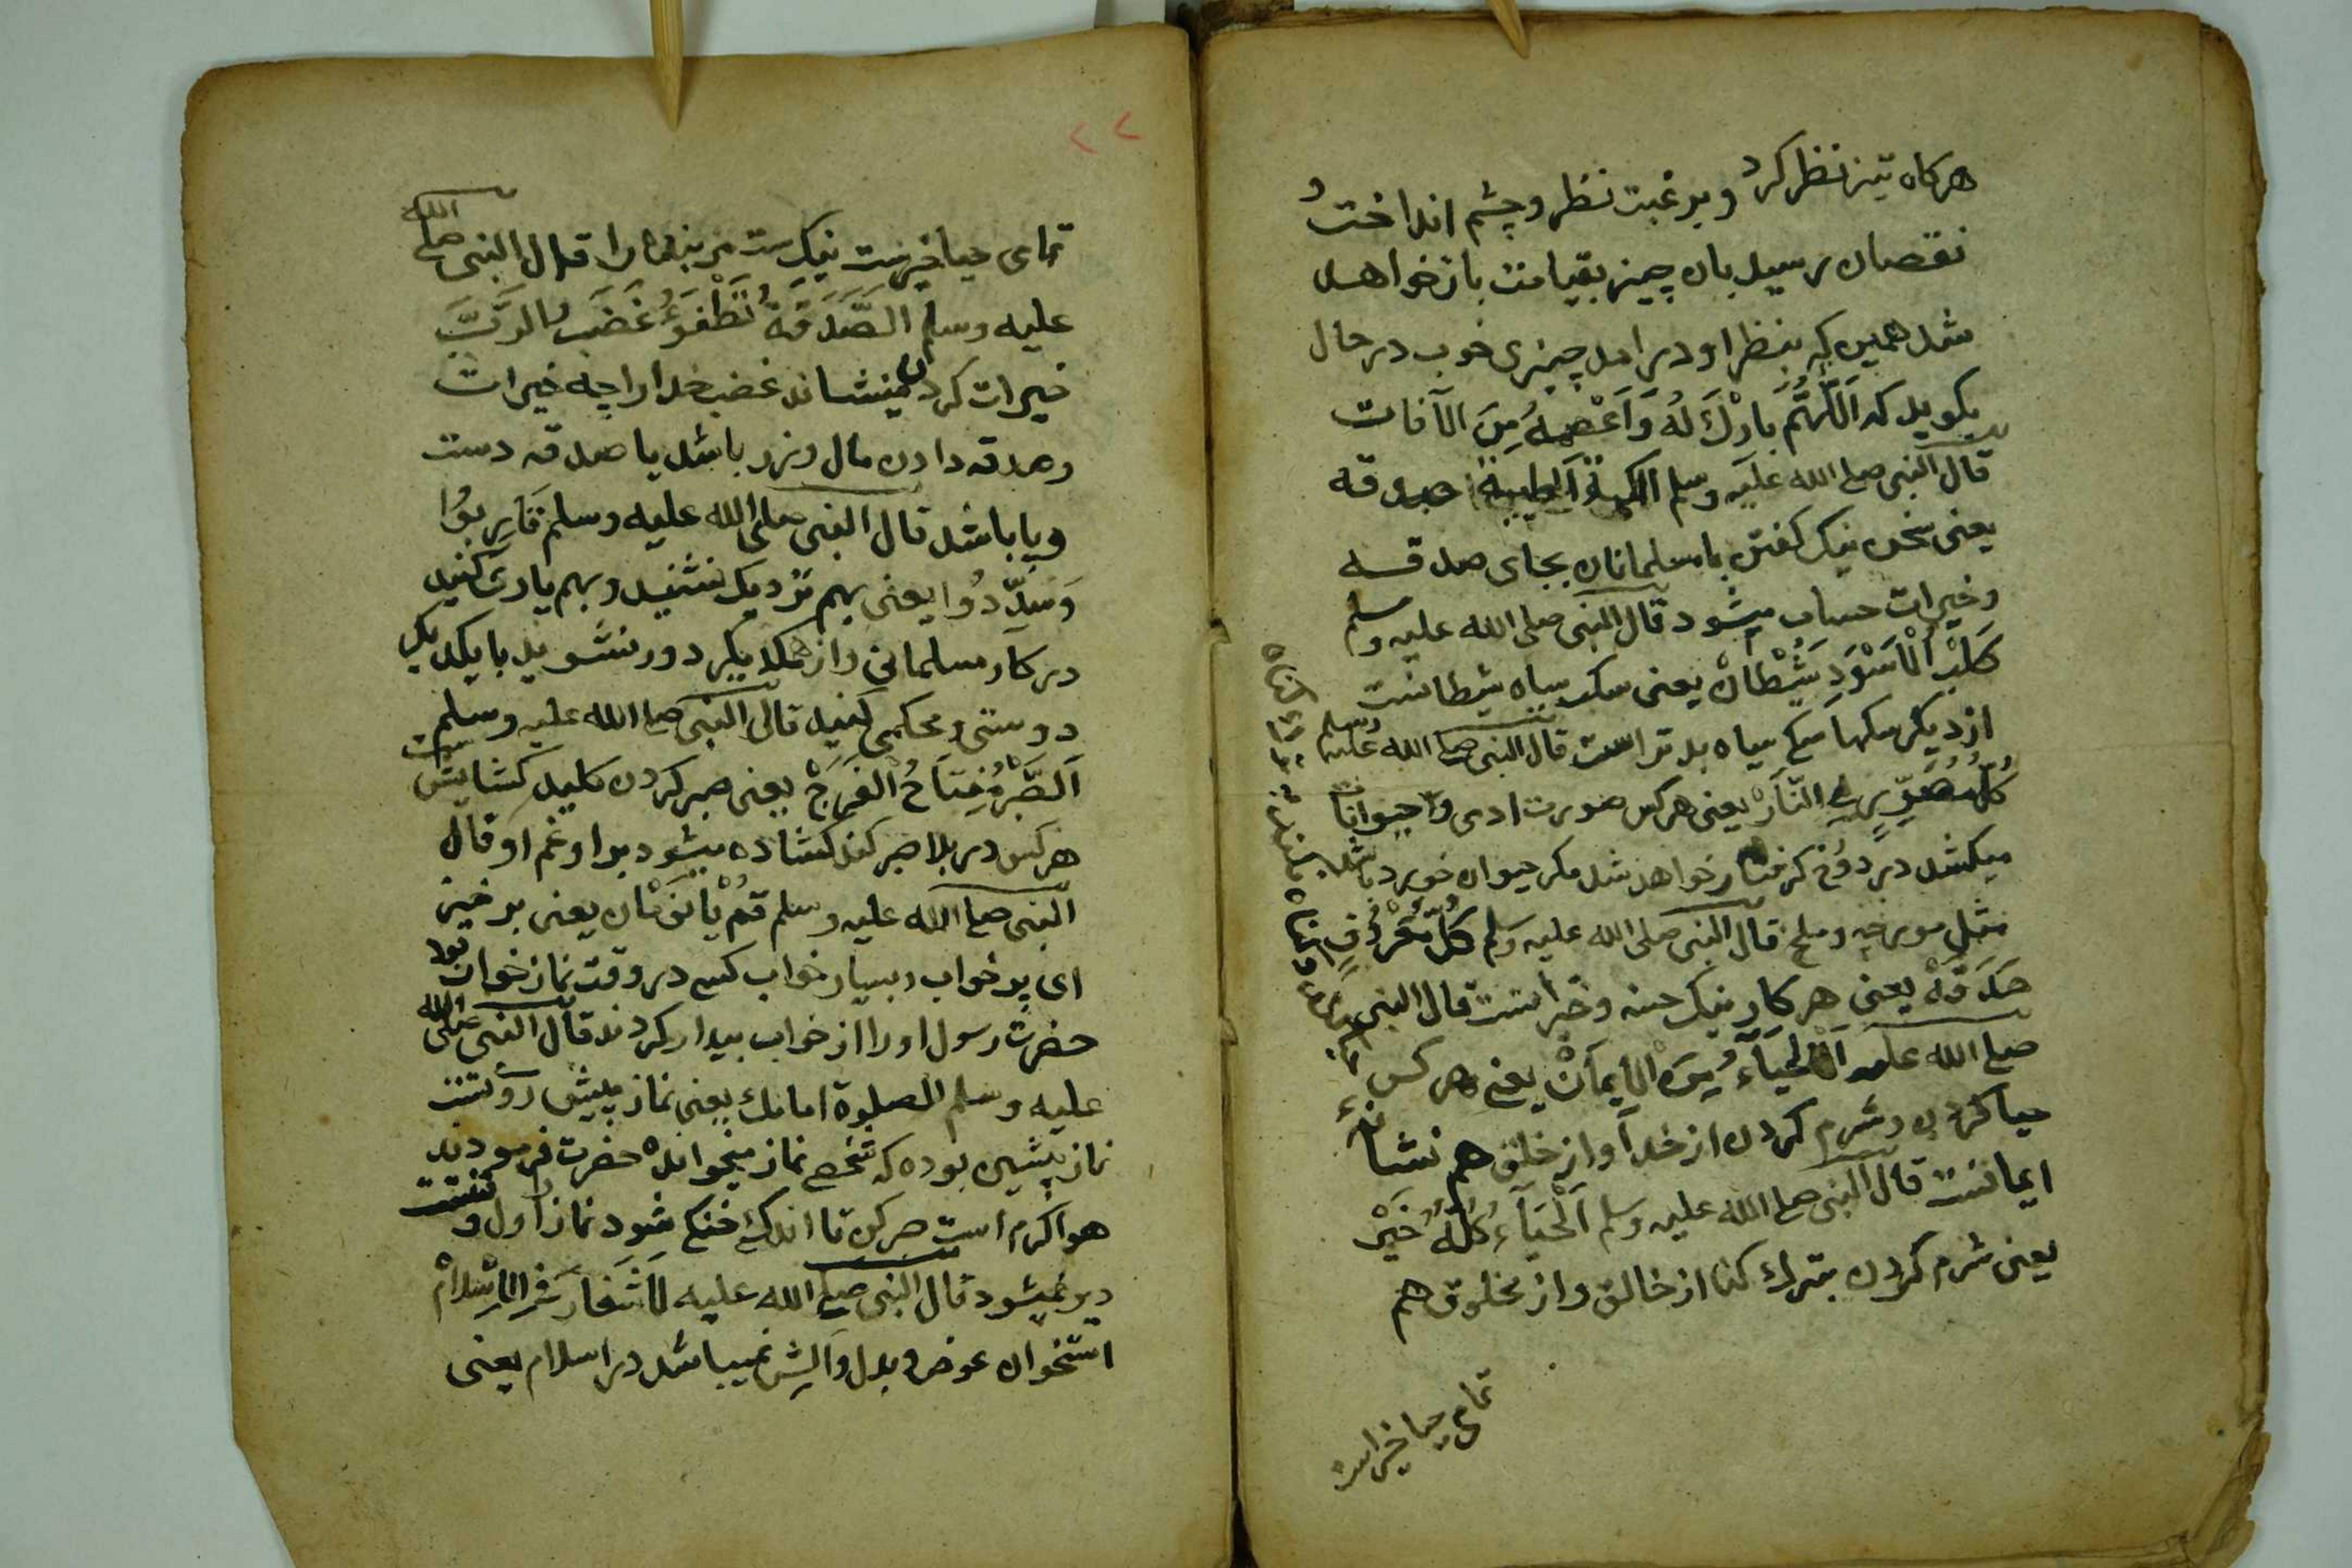 هرکاه تیز نظر کرد و برغبت نظر و چشم انداخت و
نقصان رسید بان چیز بقیامت باز خواهد
شد همین که بنظر او درامد چیزی خوب در حال
بکوید که اَللّهُمَّ بارْكَ لَهُ وَ اَعْصِمهُ مِنَ الآفات
قال النبی صلی الله علیه وسلم الکلمةُ الطیبةُ صدقه
یعنی سخن نیک کفتن بامسلمانان بجای صدقه
وخیرات حساب میشود قال النبی صلی الله علیه وسلم
کَلْبُ الْاَسْوَدِ شَیْطانْ یعنی سک سیاه شیطانست
از دیکر سکها سک سیاه بدتر است قال النبی صلی الله علیه وسلم
کُلُّ مُصَوِّرٍ فِی النّارْ یعنی هرکس صورت ادمی و حیوانات
میکشد در دوزخ کرفتار خواهد شد مکر حیوان خورد باشد
مثل مورچه و ملخ قال النبی صلی الله علیه وسلم کُلُّ مَعْرُوفٍ
صَدَقَهْ یعنی هر کار نیک حسنه و خیراتست قال النبی
صلی الله علیه اَلْحَیآءُ مِنَ الایمانْ یعنی هرکس
حیا کردن و شرم کردن از خدا و از خلق هم نشانهء
ایمانست قال النبی صلی الله علیه وسلم اَلْحَیآءُ کُلُّهُ خَیْرْ
یعنی شرم کردن بترك کنا از خالق و از مخلوق هم
تمام حیا خیراست
۲۲
تمامی حیا خیرست نیکست مر بندها را قال النبی صلی الله
علیه وسلم الصَّدَقَةُ تَطْفَوءُ غَضَبَ الرَّبَّ
خیرات کردن مینشاند غضب خدا را چه خیرات
وصدقه دادن مال و زر باشد یا صدقه دست
و پا باشد قال النبی صلی الله علیه وسلم قَارِبوُا
وَ سَدِّدُوا یعنی بهم نزدیک نشنید و بهم یاری کنید
در کار مسلمانی و از همکدیکر دور نشوید بایکدیکر
دوستی و محکمی کنید قال النبی صلی الله علیه وسلم
اَلصَّبْرُ مِفتاحُ الْفَرَجْ یعنی صبر کردن کلید کشایش
هرکس در بلا صبر کند کشاده میشود بر او غم او قال
النبی صلی الله علیه وسلم قُمْ یا نَوْمان یعنی برخیز
ای پر خواب و بسیار خواب کسی در وقت نماز خواب بود
حضرت رسول او را از خواب بیدار کردند قال النبی صلی الله
علیه وسلم الصلوة امامك یعنی نماز پیش روتست
نماز پیشین بوده که شخصی نماز میخوانده حضرت فرمودند
هوا کرم است صبر کن تا اندک خنک شود نماز اول وقتست
دیر نمیشود قال النبی صلی الله علیه لاَشَغارَ فِی الاِسْلامْ
استخوان عوض و بدل و الیش نمیباشد در اسلام یعنی